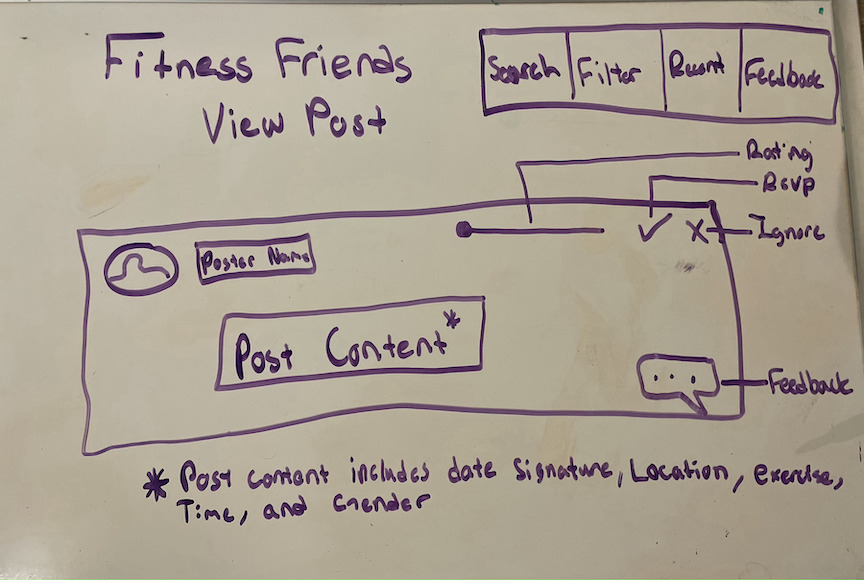 Fitness Friends
View Post
Search Filter Recent Feedback
Rating
Rsvp
Ignore
Poster Name
Post Content*
...
Feedback
* Post content includes date signature, Location, exercise,
Time, and Gender